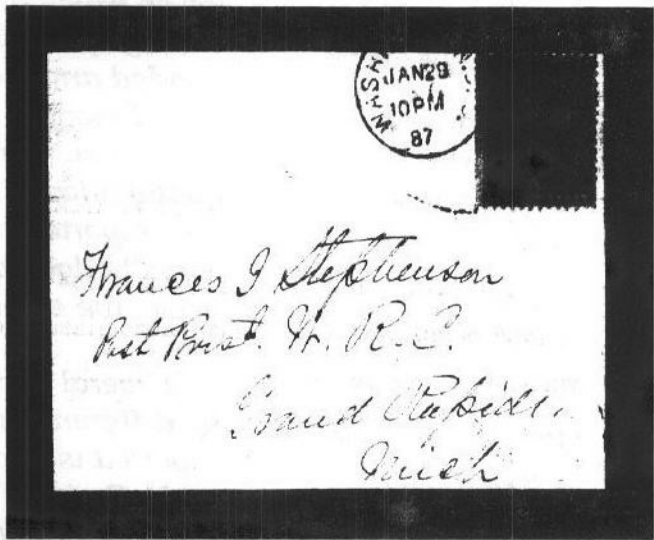 WASH
JAN 29
10PM
87
Frances J Stephenson
Past Prest. W. R. C.
Grand Rapids,
Mich